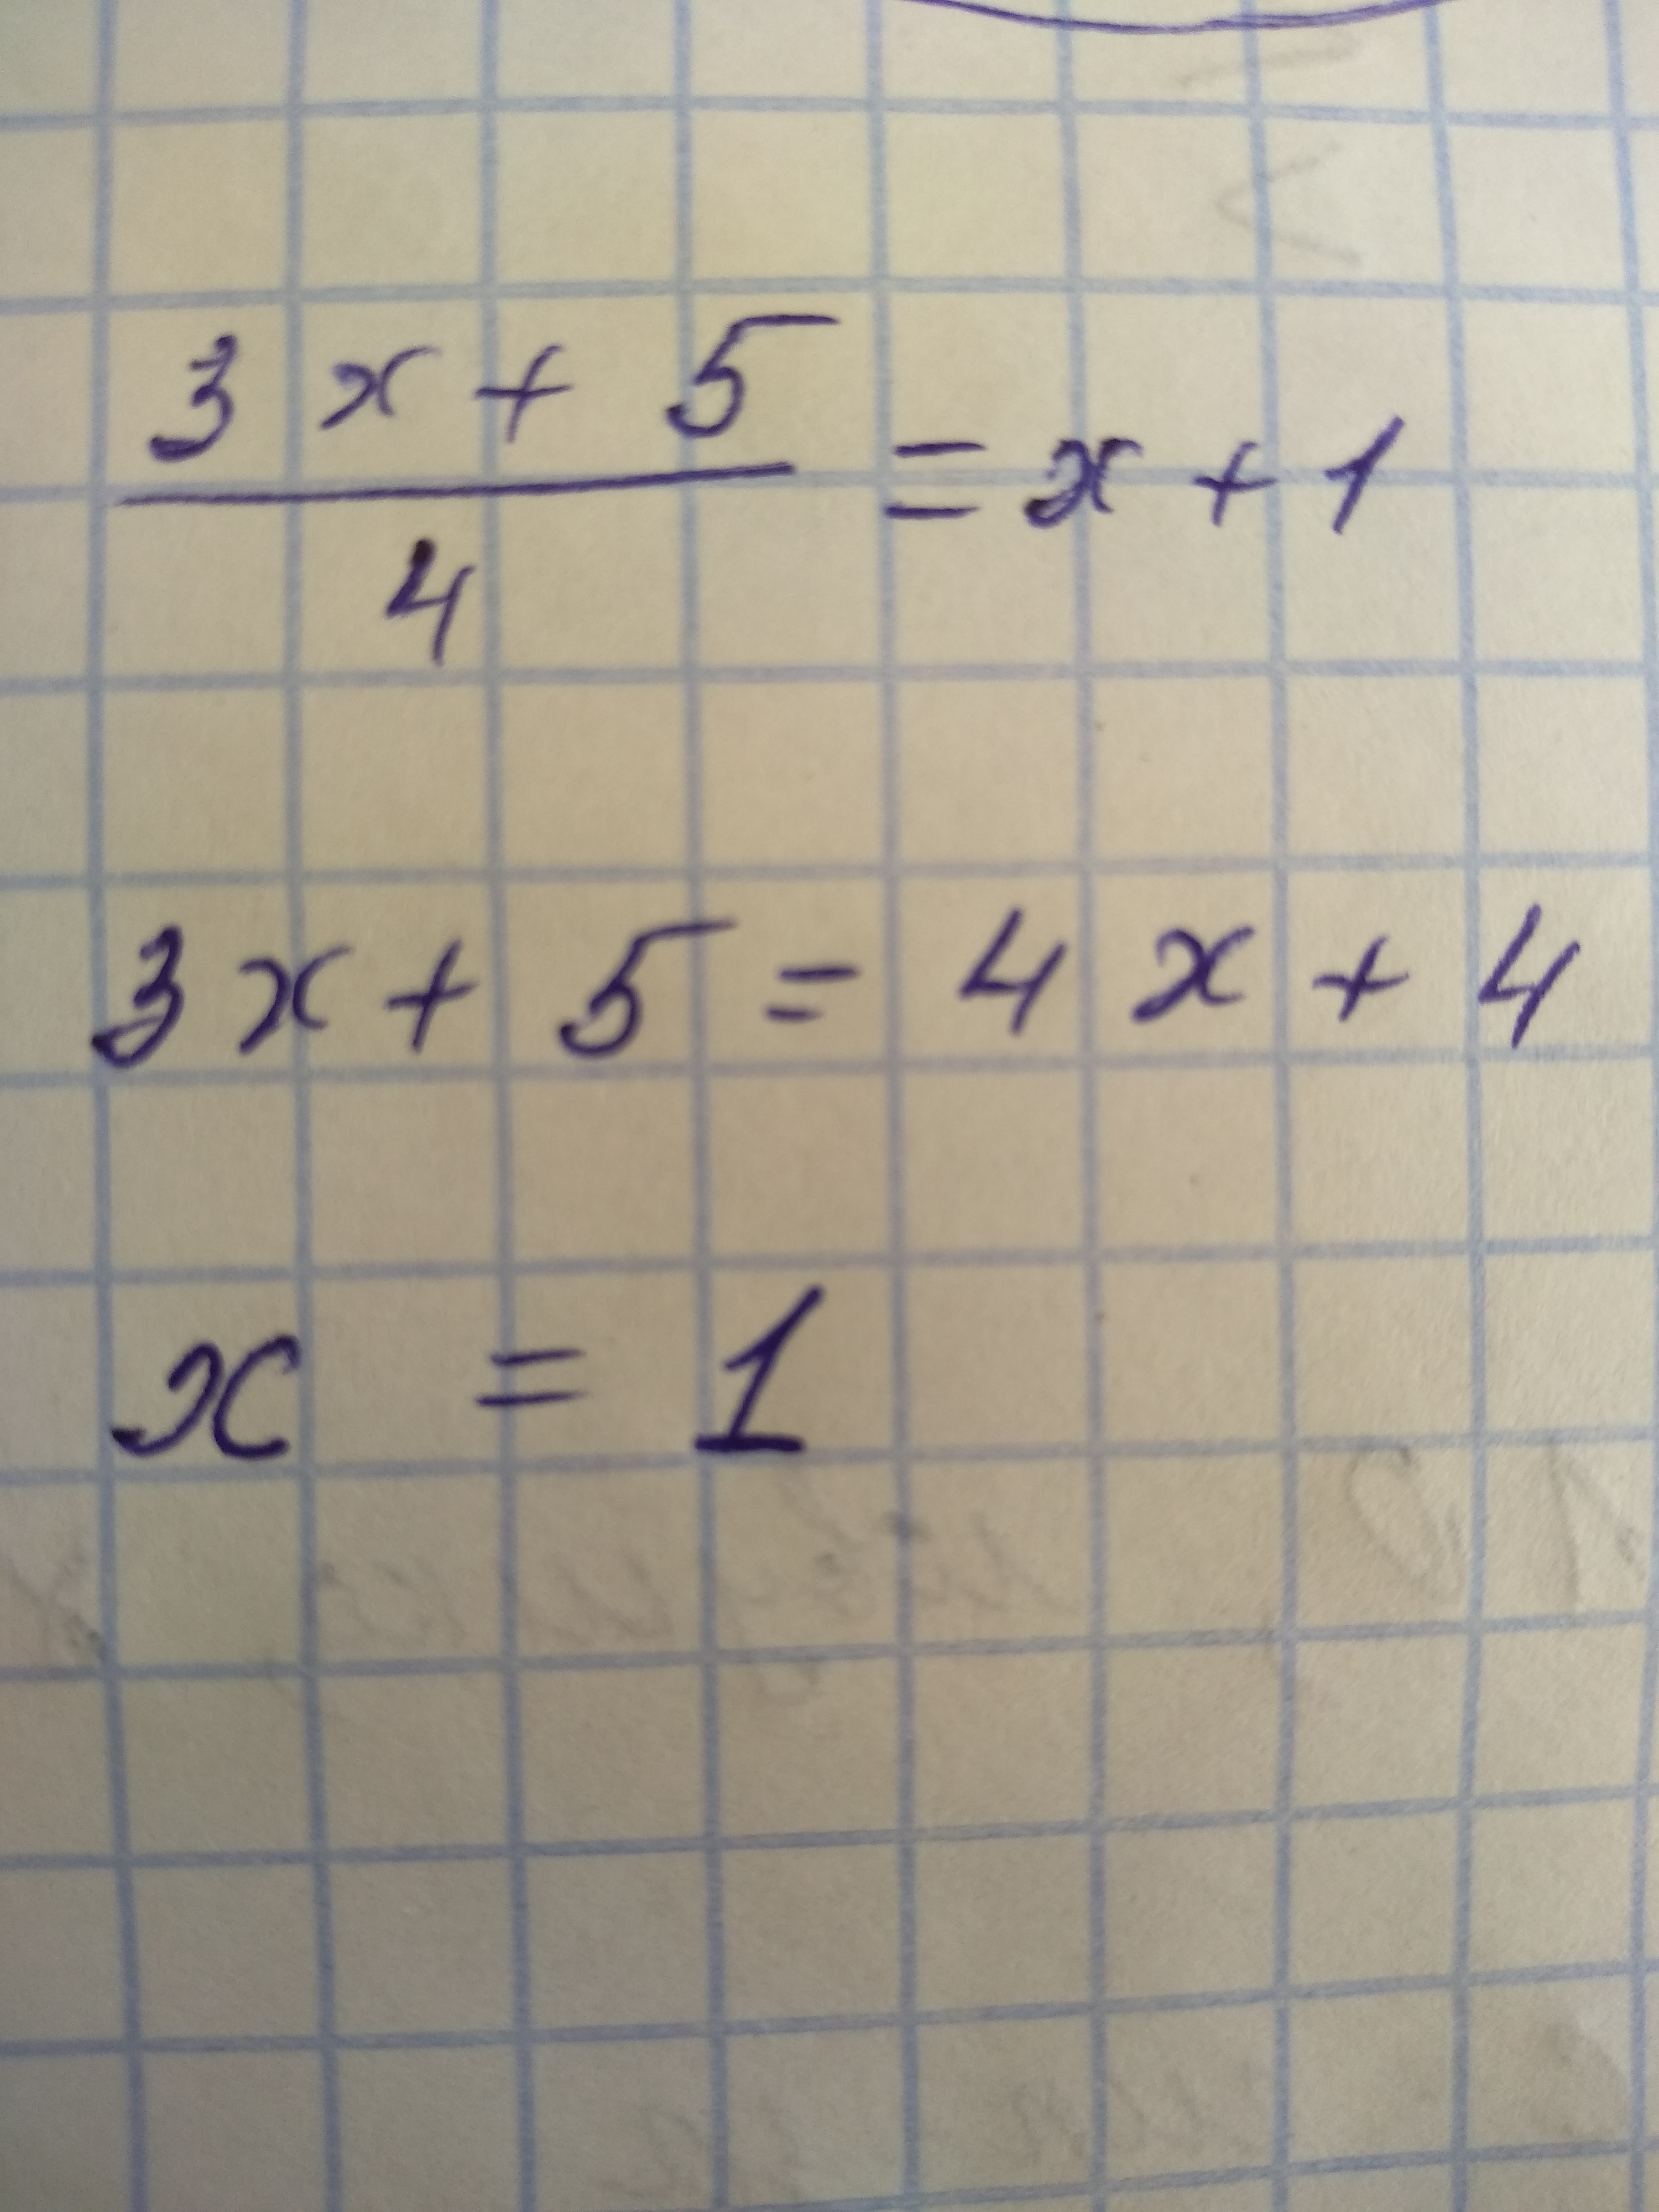 (3x + 5)/4 = x + 1
3x + 5 = 4x + 4
x = 1